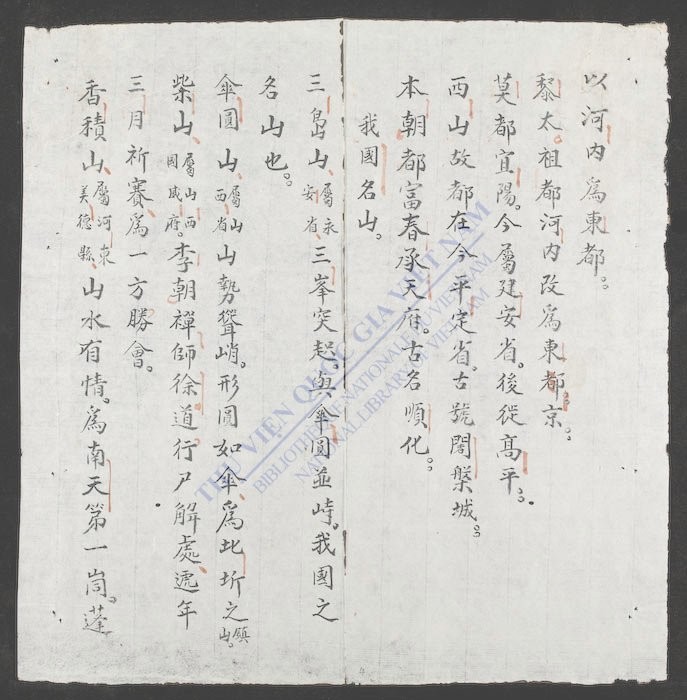 以河内爲東都。
黎太祖都河内改爲東都京。
莫都宜陽。今屬建安省。後從高平。
西山故都在今平定省。古號闍槃城。
本朝都富春承天府。古名順化。
我國名山。
三島山屬永安省三峯突起。與傘圓並峙。我國之
名山也。
傘圓山屬山西省山勢聳峭。形圓如傘爲北圻之鎮山。
柴山屬山西國威府。李朝禪師徐道行尸解處遞年
三月祈賽爲一方勝會。
香積山屬河東美德縣山水有情。爲南天第一峝。蓬
THƯ VIỆN QUỐC GIA VIỆT NAM
BIBLIOTHÈQUE NATIONALE DU VIETNAM
NATIONAL LIBRARY OF VIETNAM